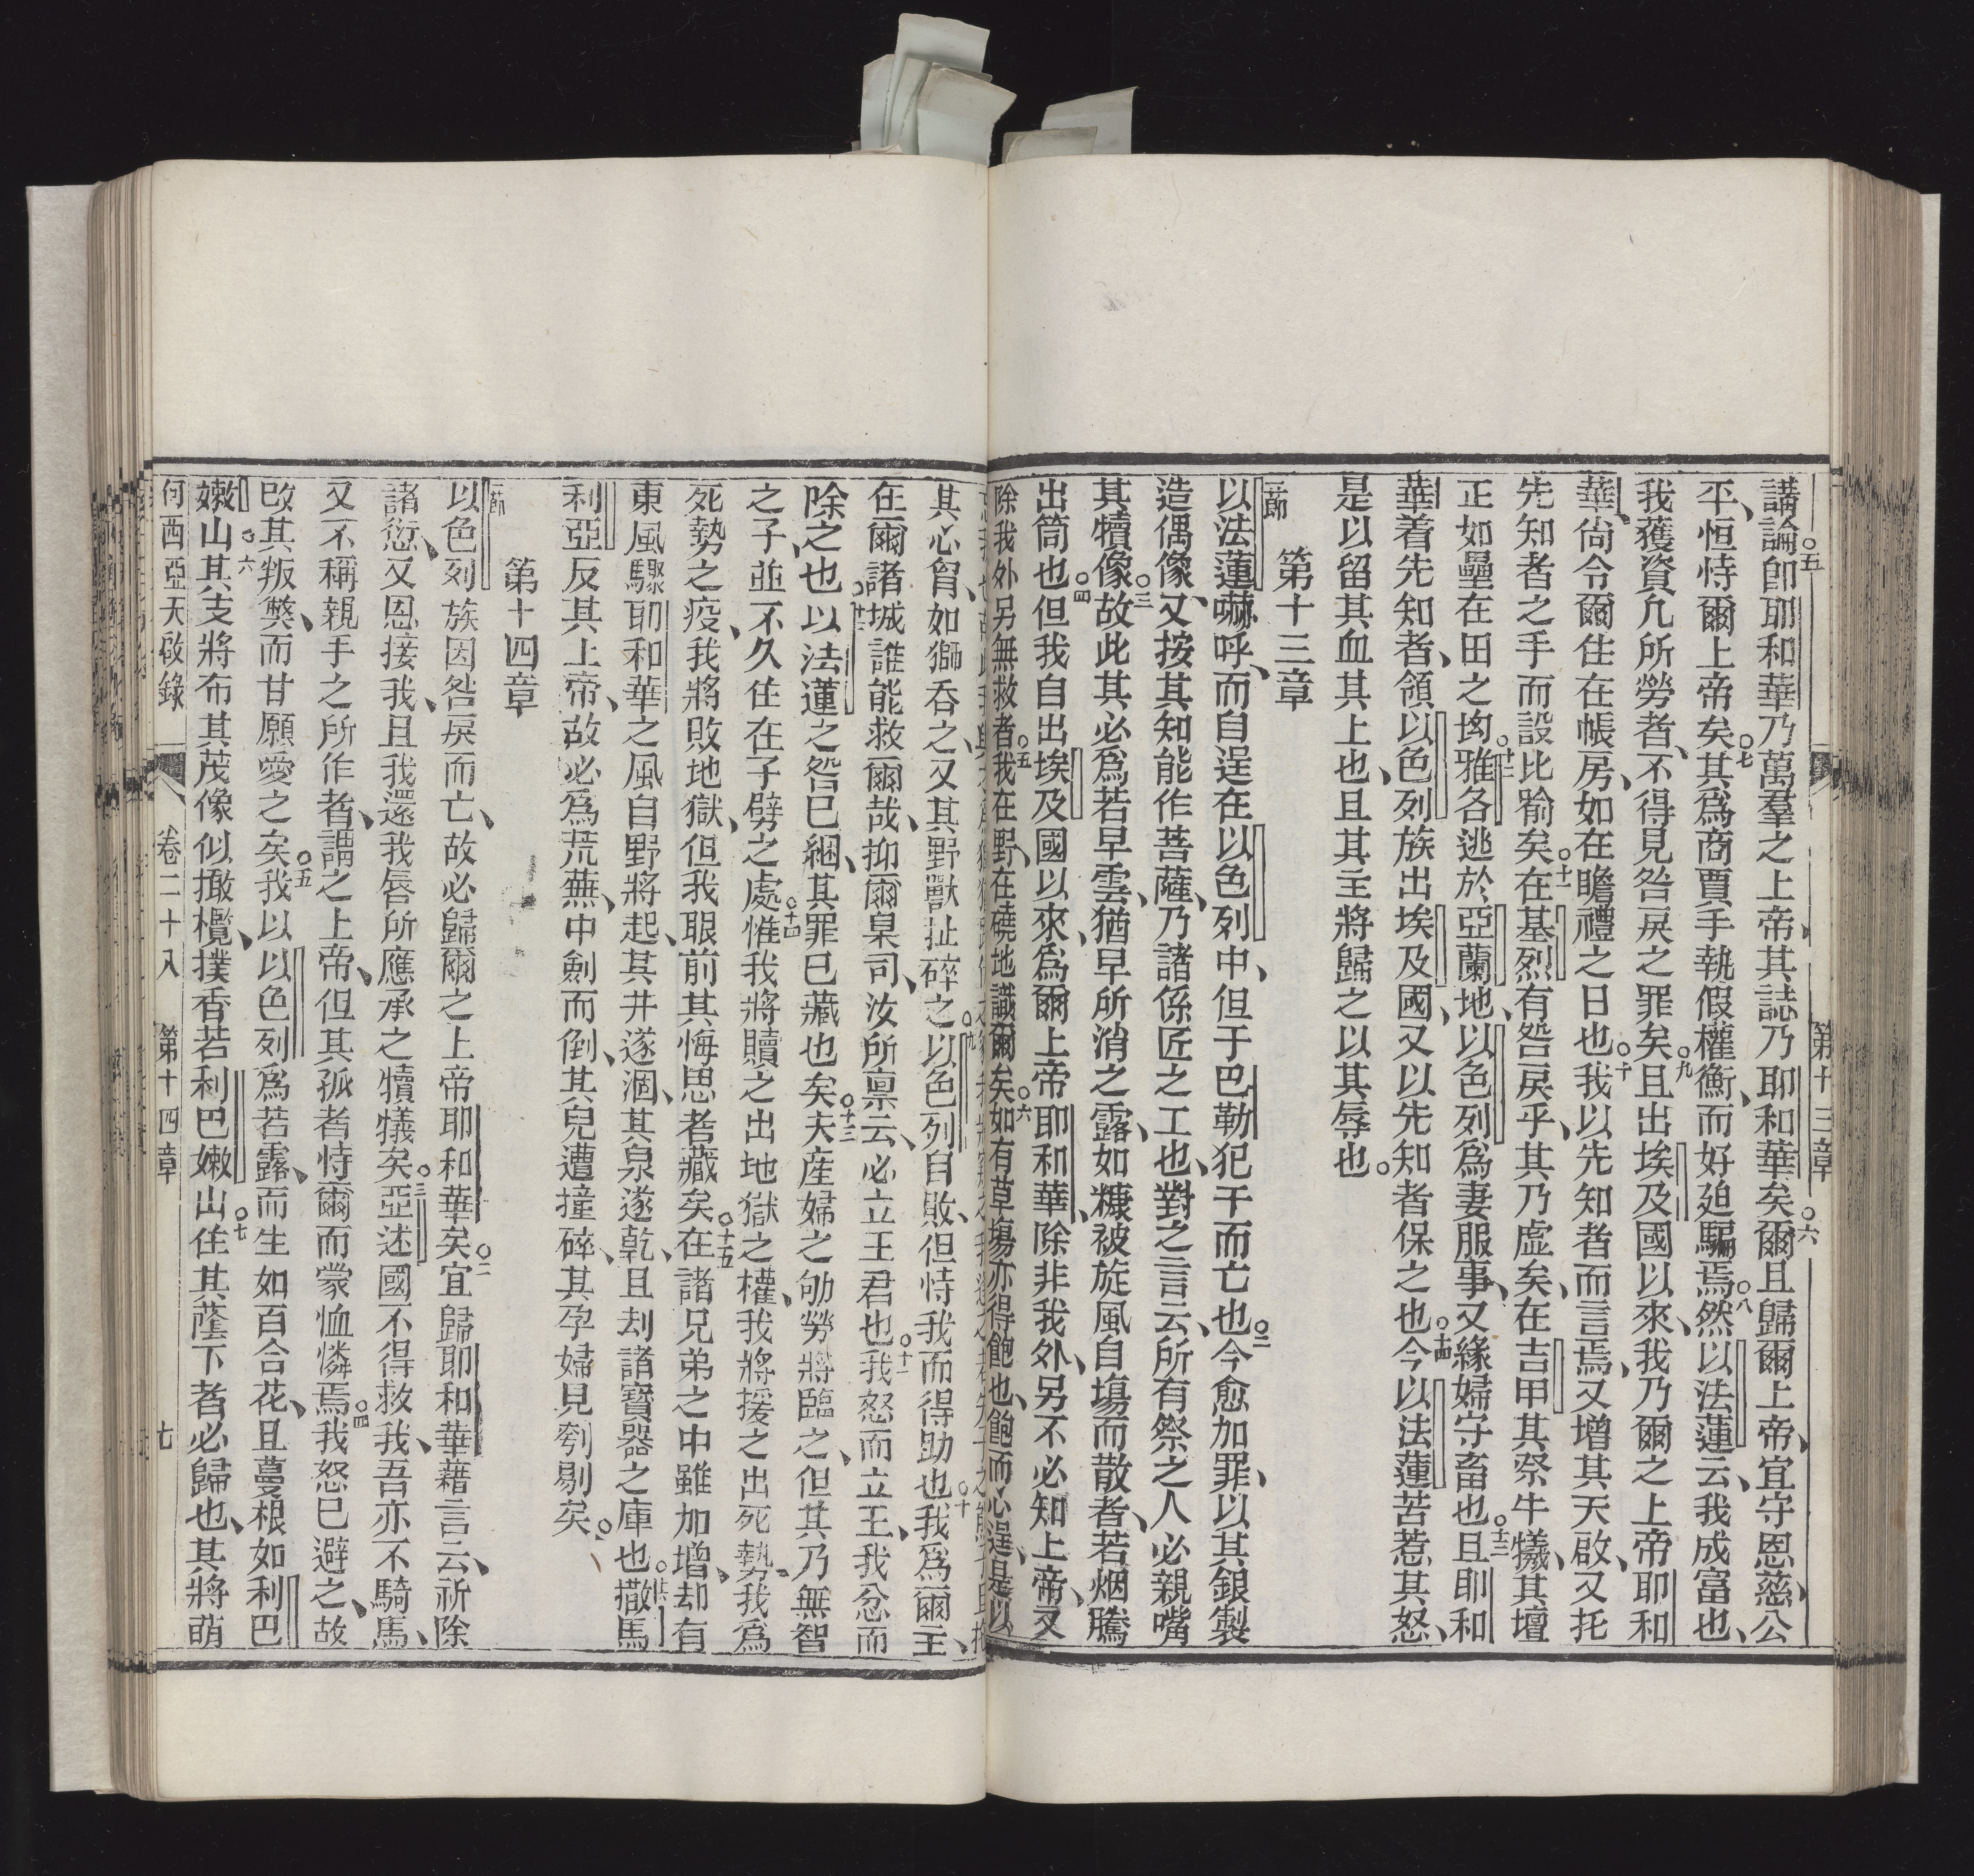 第十三章
講論○五即耶和華乃萬羣之上帝、其誌乃耶和華矣○六爾且歸爾上帝、宜守恩慈、公
平、恒恃爾上帝矣○七其爲商賈手執假權衡、而好廹騙焉○八然以法蓮云、我成富也、
我獲資凢所勞者、不得見咎戾之罪矣○九且出埃及國以來、我乃爾之上帝耶和
華、尚令爾住在帳房、如在瞻禮之日也○十我以先知者而言焉、又增其天啟、又托
先知者之手而設比喻矣○十一在基烈有咎戾乎、其乃虛矣、在吉甲其祭牛犧、其壇
正如壘在田之坳○十二雅各逃於亞蘭地、以色列爲妻服事、又緣婦守畜也○十三且耶和
華着先知者、領以色列族出埃及國、又以先知者保之也○十四今以法蓮苦惹其怒、
是以留其血其上也、且其主將歸之以其辱也。
第十三章
一節以法蓮嚇呼、而自逞在以色列中、但于巴勒犯干而亡也○二今愈加罪、以其銀製
造偶像、又按其知能作菩薩、乃諸係匠之工也、對之言云、所有祭之人必親嘴
其犢像○三故此其必爲若早雲、猶早所消之露、如糠被旋風自塲而散者、若烟騰
出筒也○四但我自出埃及國以來、爲爾上帝耶和華、除非我外、另不必知上帝、又
除我外另無救者○五我在野、在磽地識爾矣○六如有草塲亦得飽也、飽而心逞、是以
其心胷、如獅吞之、又其野獸扯碎之○九以色列自敗、但恃我而得助也○十我爲爾王、
在爾諸城誰能救爾哉、抑爾臬司、汝所禀云、必立王君也○十一我怒而立王、我忿而
除之也○十二以法蓮之咎已綑、其罪已藏也矣○十三夫産婦之劬勞將臨之、但其乃無智
之子、並不久住在子劈之處○十四惟我將贖之出地獄之權、我將援之出死勢、我爲
死勢之疫、我將敗地獄、但我眼前其悔思者藏矣○十五在諸兄弟之中雖加增、却有
東風驟、耶和華之風自野將起、其井遂涸、其泉遂乾、且刦諸寶器之庫也○十六撒馬
利亞反其上帝、故必爲荒蕪、中劍而倒、其兒遭撞碎、其孕婦見刳剔矣。
第十四章
一節以色列族因咎戾而亡、故必歸爾之上帝耶和華矣○二宜歸耶和華、藉言云、祈除
諸愆、又恩接我、且我還我唇所應承之犢犧矣○三亞述國不得救我、吾亦不騎馬、
又不稱親手之所作者、謂之上帝、但其孤者恃爾而蒙恤憐焉○四我怒已避之、故
改其叛獘、而甘願愛之矣○五我以以色列爲若露、而生如百合花、且蔓根如利巴
嫩山○六其支將布其茂像似橄欖、撲香若利巴嫩○七出住其蔭下者必歸也、其將萌
何西亞天啟錄 卷二十八 第十四章 七